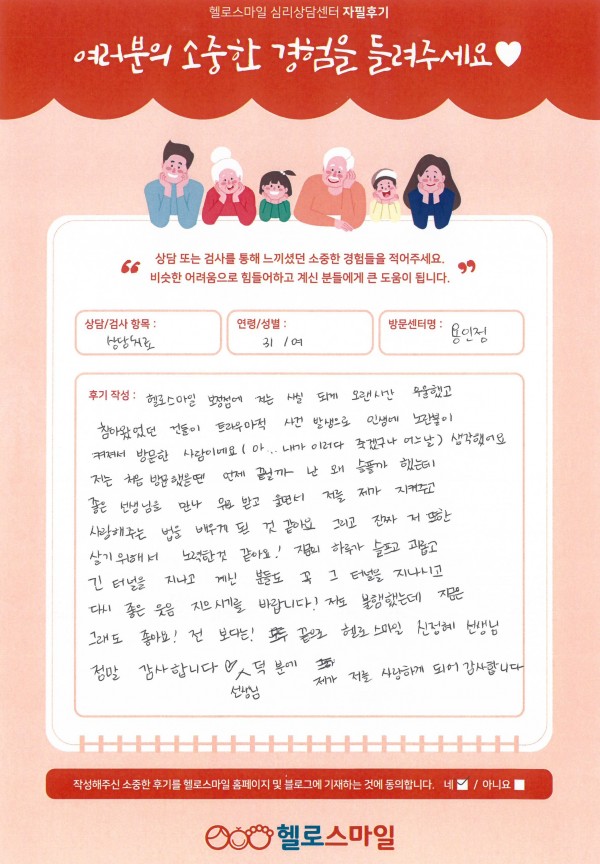 헬로스마일 심리상담센터 자필후기
여러분의 소중한 경험을 들려주세요
상담 또는 검사를 통해 느끼셨던 소중한 경험들을 적어주세요.
비슷한 어려움으로 힘들어하고 계신 분들에게 큰 도움이 됩니다.
상담/검사 항목 :
상담치료
연령/성별 :
31 / 여
방문센터명 :
용인점
후기 작성 : 헬로스마일 저는 사실 되게 오랜시간 우울했고
참아왔었던 것들이 트라우마적 사건 발생으로 인생에 노란불이
켜져서 방문한 사람이에요 ( 아... 내가 이러다 죽겠구나 어느날 ) 생각했어요
저는 처음 방문했을땐 언제 끝날까 난 왜 슬플까 했는데
좋은 선생님을 만나 위로 받고 울면서 저를 제가 지켜주고
사랑해주는 법을 배우게 된 것 같아요 그리고 진짜 저 또한
살기 위해서 노력한것 같아요! 하루가 슬프고 괴롭고
긴 터널을 지나고 계신 분들도 꼭 그 터널을 지나시고
다시 좋은 웃음 지으시기를 바랍니다! 저도 불행했는데 지금은
그래도 좋아요! 전 보다는! 끝으로 헬로스마일 신정혜 선생님
정말 감사합니다 ♡ 덕분에 제가 저를 사랑하게 되어 감사합니다
선생님
작성해주신 소중한 후기를 헬로스마일 홈페이지 및 블로그에 기재하는 것에 동의합니다. 네 / 아니요
헬로스마일